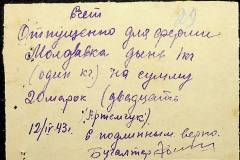 Счет
Отпущенно для фермы
Молдавка дынь 1кг
(один кг) на сумму
20 марок (двадцать
12/IV-43г.
С подлинным верно.
Бухгалтер